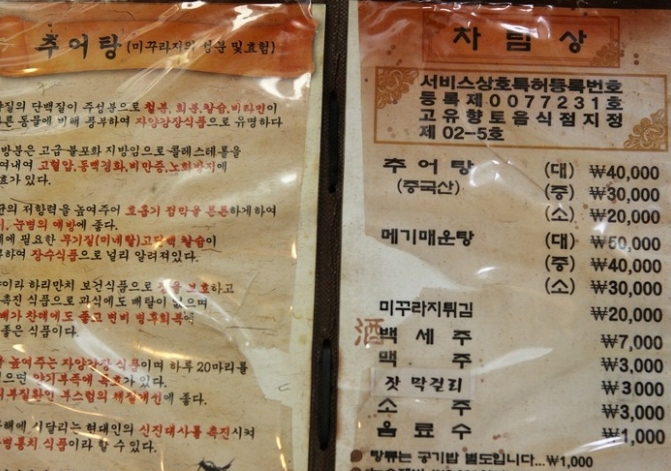 추어탕 (미꾸라지의 성분 및 효험)
단백질이 주성분으로 철분, 회분, 칼슘, 비타민이
동물에 비해 풍부하여 자양강장식품으로 유명하다
고급 불포화 지방임으로 콜레스테롤을
고혈압, 동맥경화, 비만증, 노화방지에
있다.
저항력을 높여주어 호흡기 점막을 튼튼하게하여
눈병의 예방에 좋다.
필요한 무기질(미네랄)고단백 칼슘이
장수식품으로 널리 알려져있다.
하리만치 보건식품으로 보호하고
식품으로 과식에도 배탈이 없으며
찬데에도 좋고 변비 병후회복에
좋은 식품이다.
높여주는 자양강장 식품이며 하루 20마리를
양기부족에 있다.
부스럼의 체질개선에 좋다.
시달리는 현대인의 신진대사를 촉진시켜
식품이라 할 수 있다.
차림상
서비스상호특허등록번호
등록제0077231호
고유향토음식점지정
제 02-5호
추어탕 (대) ₩40,000
(중국산) (중) ₩30,000
(소) ₩20,000
메기매운탕 (대) ₩50,000
(중) ₩40,000
(소) ₩30,000
미꾸라지튀김 ₩20,000
酒 백세주 ₩7,000
맥주 ₩3,000
잣 막걸리 ₩3,000
소주 ₩3,000
음료수 ₩1,000
탕류는 공기밥 별도입니다...₩1,000